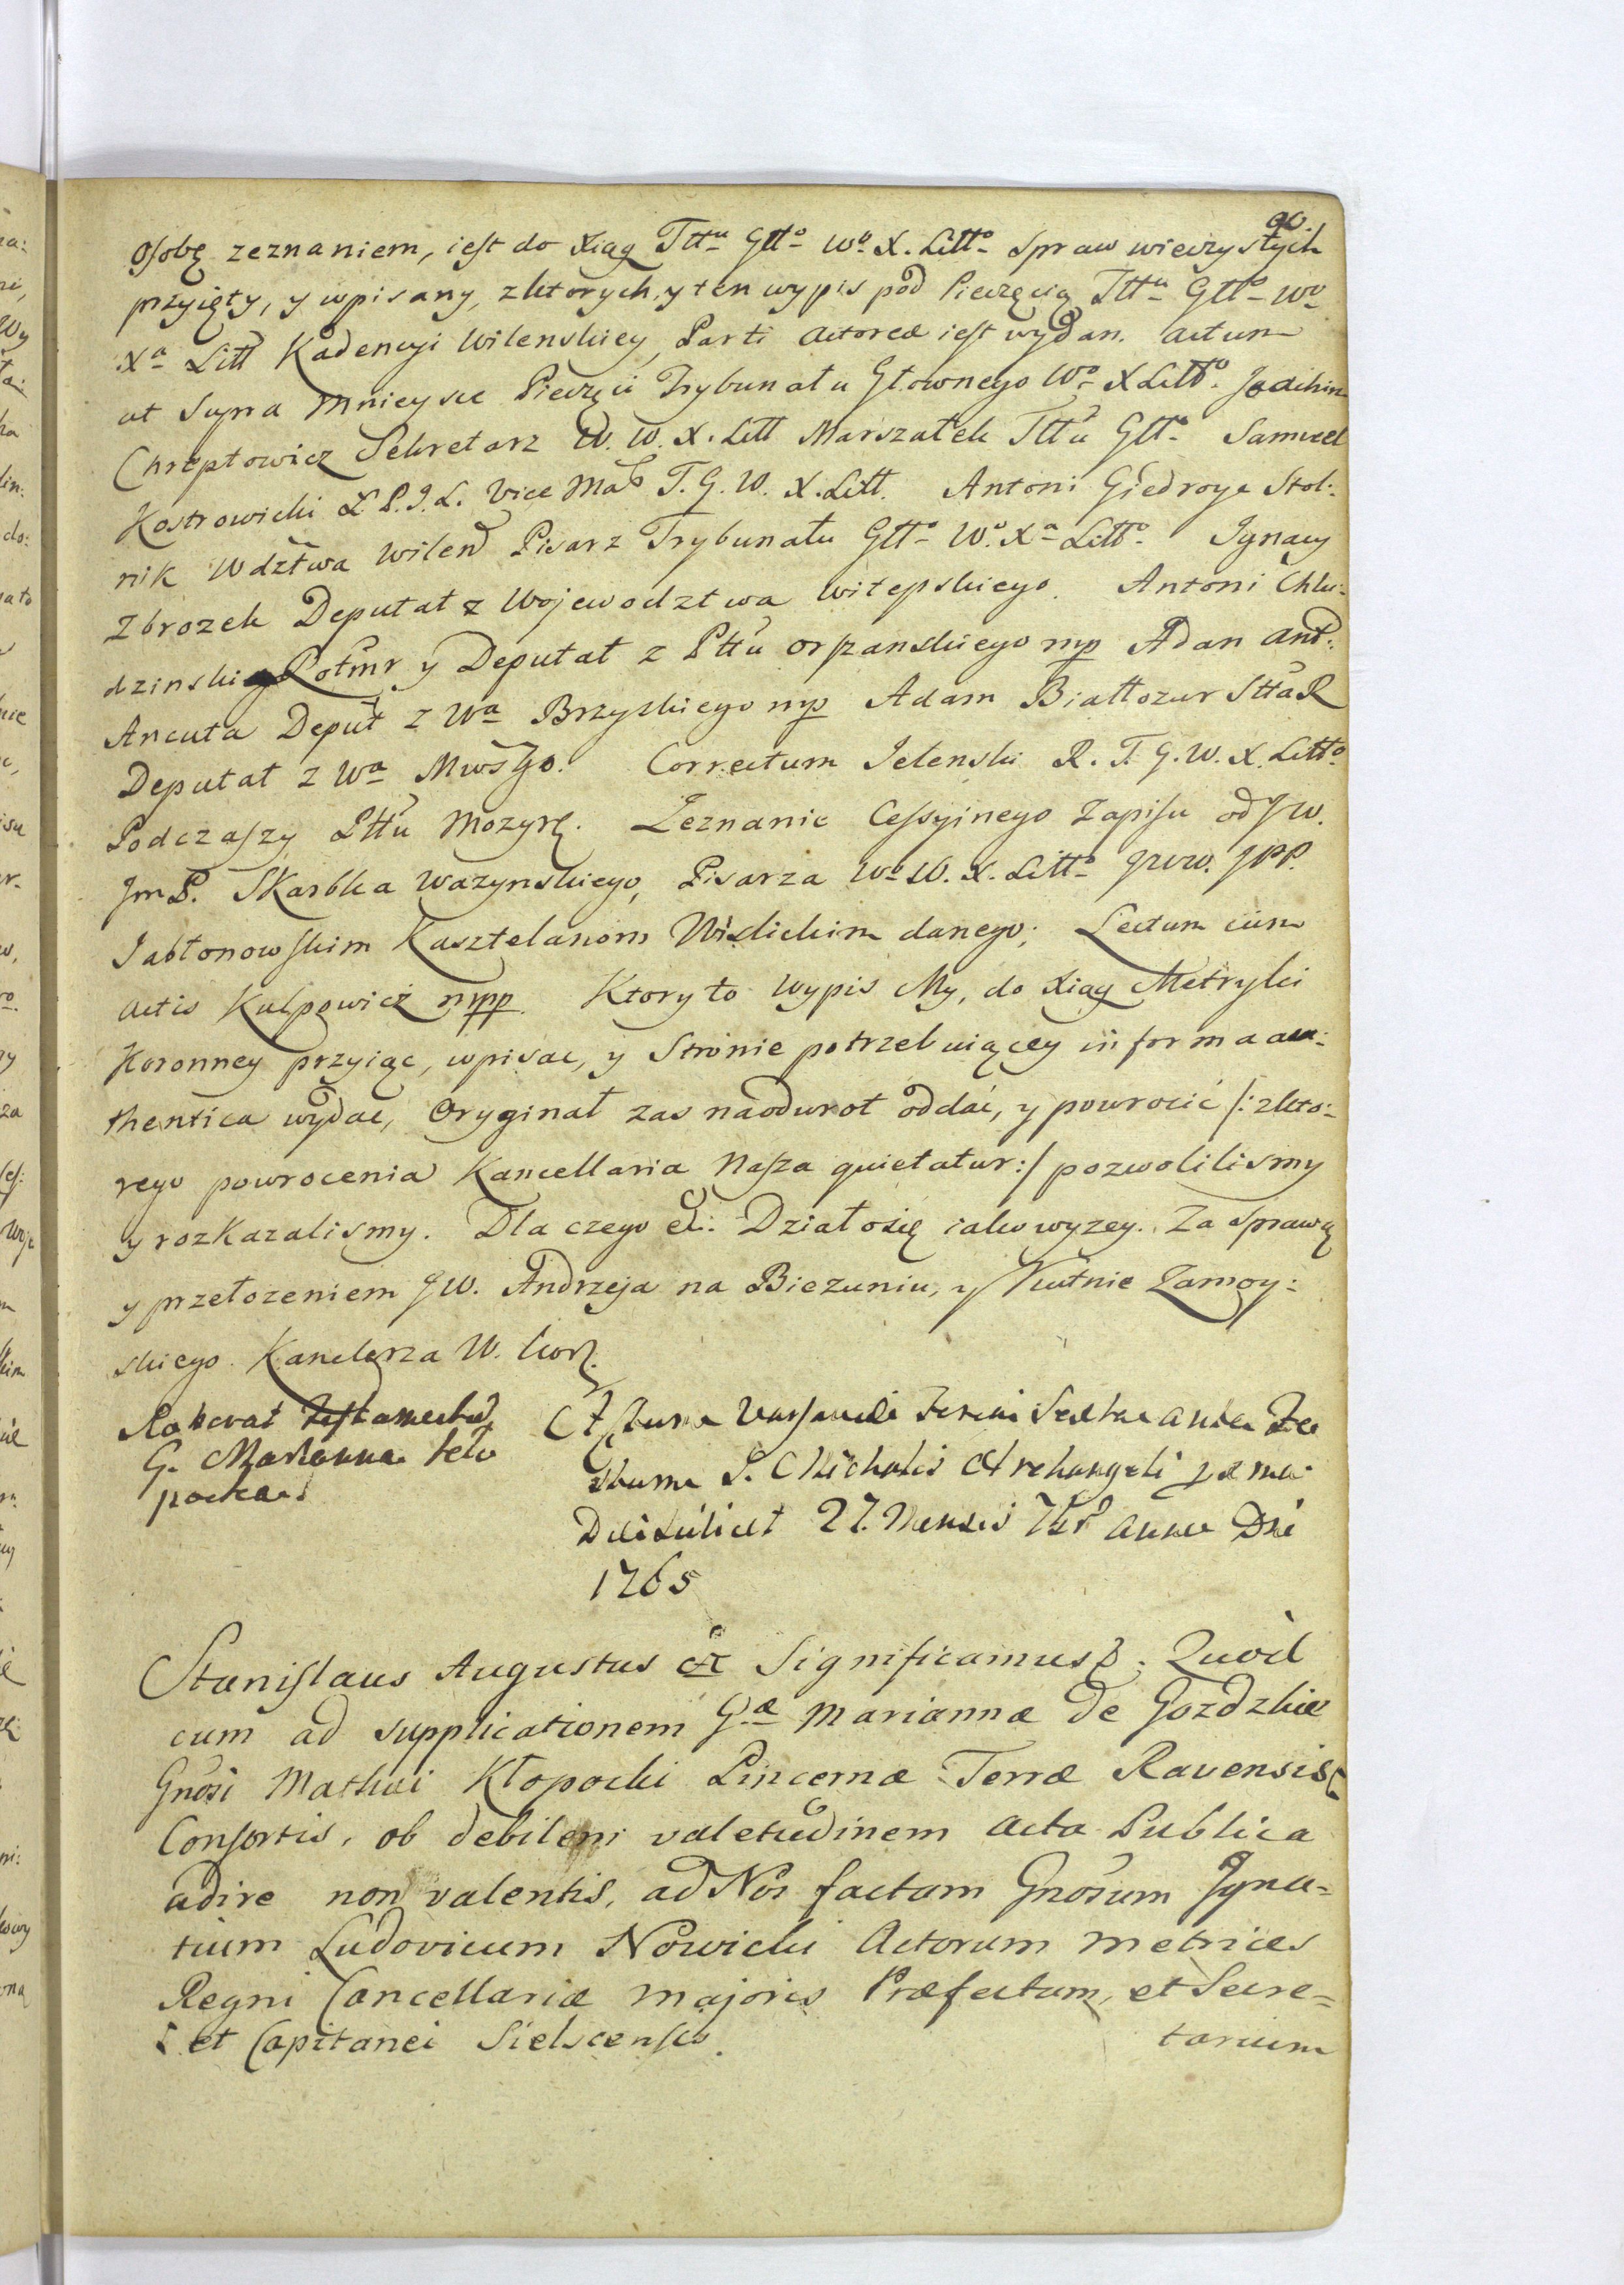 90.
osobę zeznaniem, iest do Xiąg Ttłu Głło Wo X. Litto Spraw wieczystych
przyięty, y wpisany, z ktorych, y ten wypis pod Pieczęcią Ttłu Głło Wo
Xa Litt Kadencyi Wilenskiey, Parti Actoreæ iest wydan. Actum
ut Supra Mnieysce Pieczęci Trybunału Głownego Wo X Litto. Joachim
Chreptowicz Sekretarz W. W. X. Litt Marszałek Ttłu Głło Samuel
Kostrowicki Ł P. J. L. Vice Mar T. G. W. X. Litt. Antoni Giedroyc Stol:
nik Wdztwa Wilen Pisarz Trybunału Głło W. Xa Litto Ignacy
Zbrozek Deputat z Wojewodztwa Witepskiego. Antoni Chlu:
dzinski Rotmr y Deputat z Pttu Orszanskiego mp Adan Ant:
Ancuta Deput z Wa Brzyskiego mp Adam Białłozur SttaR
Deputat z Wa Mwsgo. Correctum Jelenski R. T. G. W. X. Litto
Podczaszy Pttu Mozyrł. Zeznanie Cessyinego Zapisu od JW.
Jm P. Skarbka Wazynskiego, Pisarza Wo W. X. Litto JWW. JPP.
Jabłonowskim Kasztelanom Wislickim danego; Lectum cum
Actis Kulpowicz mpp. Ktory to Wypis My, do Xiąg Metryki
Koronney przyiąc, wpisac, y Stronie potrzebuiącey in forma au:
thentica wydac, Oryginał zas naodwrot oddać, y powrocić /: z kto:
rego powrocenia Kancellaria Nasza quietatur :/ pozwolilismy
y rozkazalismy. Dla czego &: Działo się iako wyzey. Za sprawą
y przełozeniem JW. Andrzeja na Biezuniu, y Kutnie Zamoy:
skiego Kanclerza W. Kor.
Roborat Testamentum
G. Marianna Kło
pocka.
Actum Varsaviæ Feria Sexta ante Fe
stum S. Michaelis Archangeli proxima
Die scilicet 27. Mensis 7br Anno Dni
1765
Stanislaus Augustus &c Significamus &. Quod
cum ad supplicationem Gæ Mariannæ de Gozdzkie
Gnosi Mathæi Kłopocki Pincernæ Terræ Ravensis
Consortis, ob debilem valetudinem Acta Publica
adire non valentis, ad Nos factam Gnosum Igna=
tium Ludovicum Nowicki Actorum Metrices
Regni Cancellariæ Majoris Præfectum, et Secre=
et Capitanei Sielscensis.
tarium